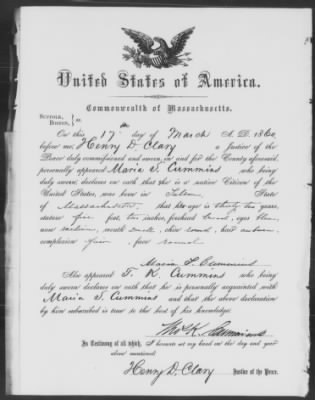 United States of America.
Commonwealth of Massachusetts.
SUFFOLK,
BOSTON, } ss.
On this 17th day of March A. D. 1860
before me, Henry D. Clary a Justice of the
Peace duly commissioned and sworn, in and for the County aforesaid,
personally appeared Maria S. Cummins who being
duly sworn, declares on oath that she is a native Citizen of the
United States, was born in Salem State
of Massachusetts, that her age is thirty two years,
stature five feet, two inches, forehead broad, eyes blue,
nose mouth chin round, hair auburn,
complexion face round
Maria S. Cummins
Also appeared T. K. Cummins who being
duly sworn declares on oath that he is personally acquainted with
Maria S. Cummins and that the above declaration
by him subscribed is true to the best of his knowledge.
Thos. K. Cummins
In Testimony of all which, I hereunto set my hand on the day and year
above mentioned.
Henry D. Clary Justice of the Peace.